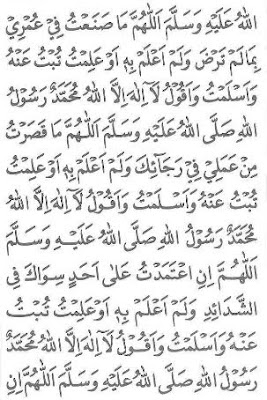 اللهُ عَلَيْهِ وَسَلَّمَ اَللّٰهُمَّ مَا صَنَعْتُ فِيْ عُمْرِيْ
بِمَالَمْ تَرْضَ وَلَمْ اَعْلَمْ بِهٖ اَوْعَلِمْتُ تُبْتُ عَنْهُ
وَاَسْلَمْتُ وَاَقُوْلُ لَآ اِلٰهَ اِلَّا اللهُ مُحَمَّدٌ رَسُوْلُ
اللهِ صَلَّى اللهُ عَلَيْهِ وَسَلَّمَ اَللّٰهُمَّ مَا قَصَرْتُ
مِنْ عَمَلِيْ فِيْ رَجَآئِكَ وَلَمْ اَعْلَمْ بِهٖ اَوْعَلِمْتُ
تُبْتُ عَنْهُ وَاَسْلَمْتُ وَاَقُوْلُ لَآ اِلٰهَ اِلَّا اللهُ
مُحَمَّدٌ رَسُوْلُ اللهِ صَلَّى اللهُ عَلَيْهِ وَسَلَّمَ
اَللّٰهُمَّ اِنِ اعْتَمَدْتُ عَلٰى اَحَدٍ سِوَاكَ فِي
الشَّدَائِدِ وَلَمْ اَعْلَمْ بِهٖ اَوْعَلِمْتُ تُبْتُ
عَنْهُ وَاَسْلَمْتُ وَاَقُوْلُ لَآ اِلٰهَ اِلَّا اللهُ مُحَمَّدٌ
رَسُوْلُ اللهِ صَلَّى اللهُ عَلَيْهِ وَسَلَّمَ اَللّٰهُمَّ اِنِ